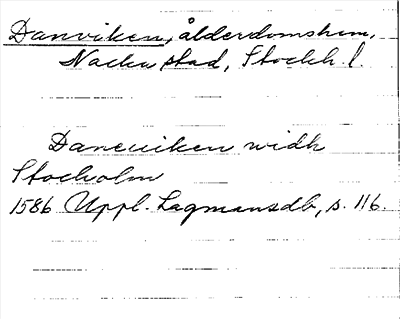 Danviken, ålderdomshem,
Nacka stad, Stockh. l.
Daneuiken widh
Stocholm
1586 Uppl. Lagmansdb, s. 116.